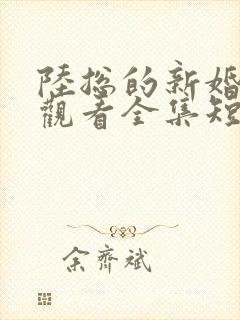 陸总的新婚
觀看全集短
余齊斌